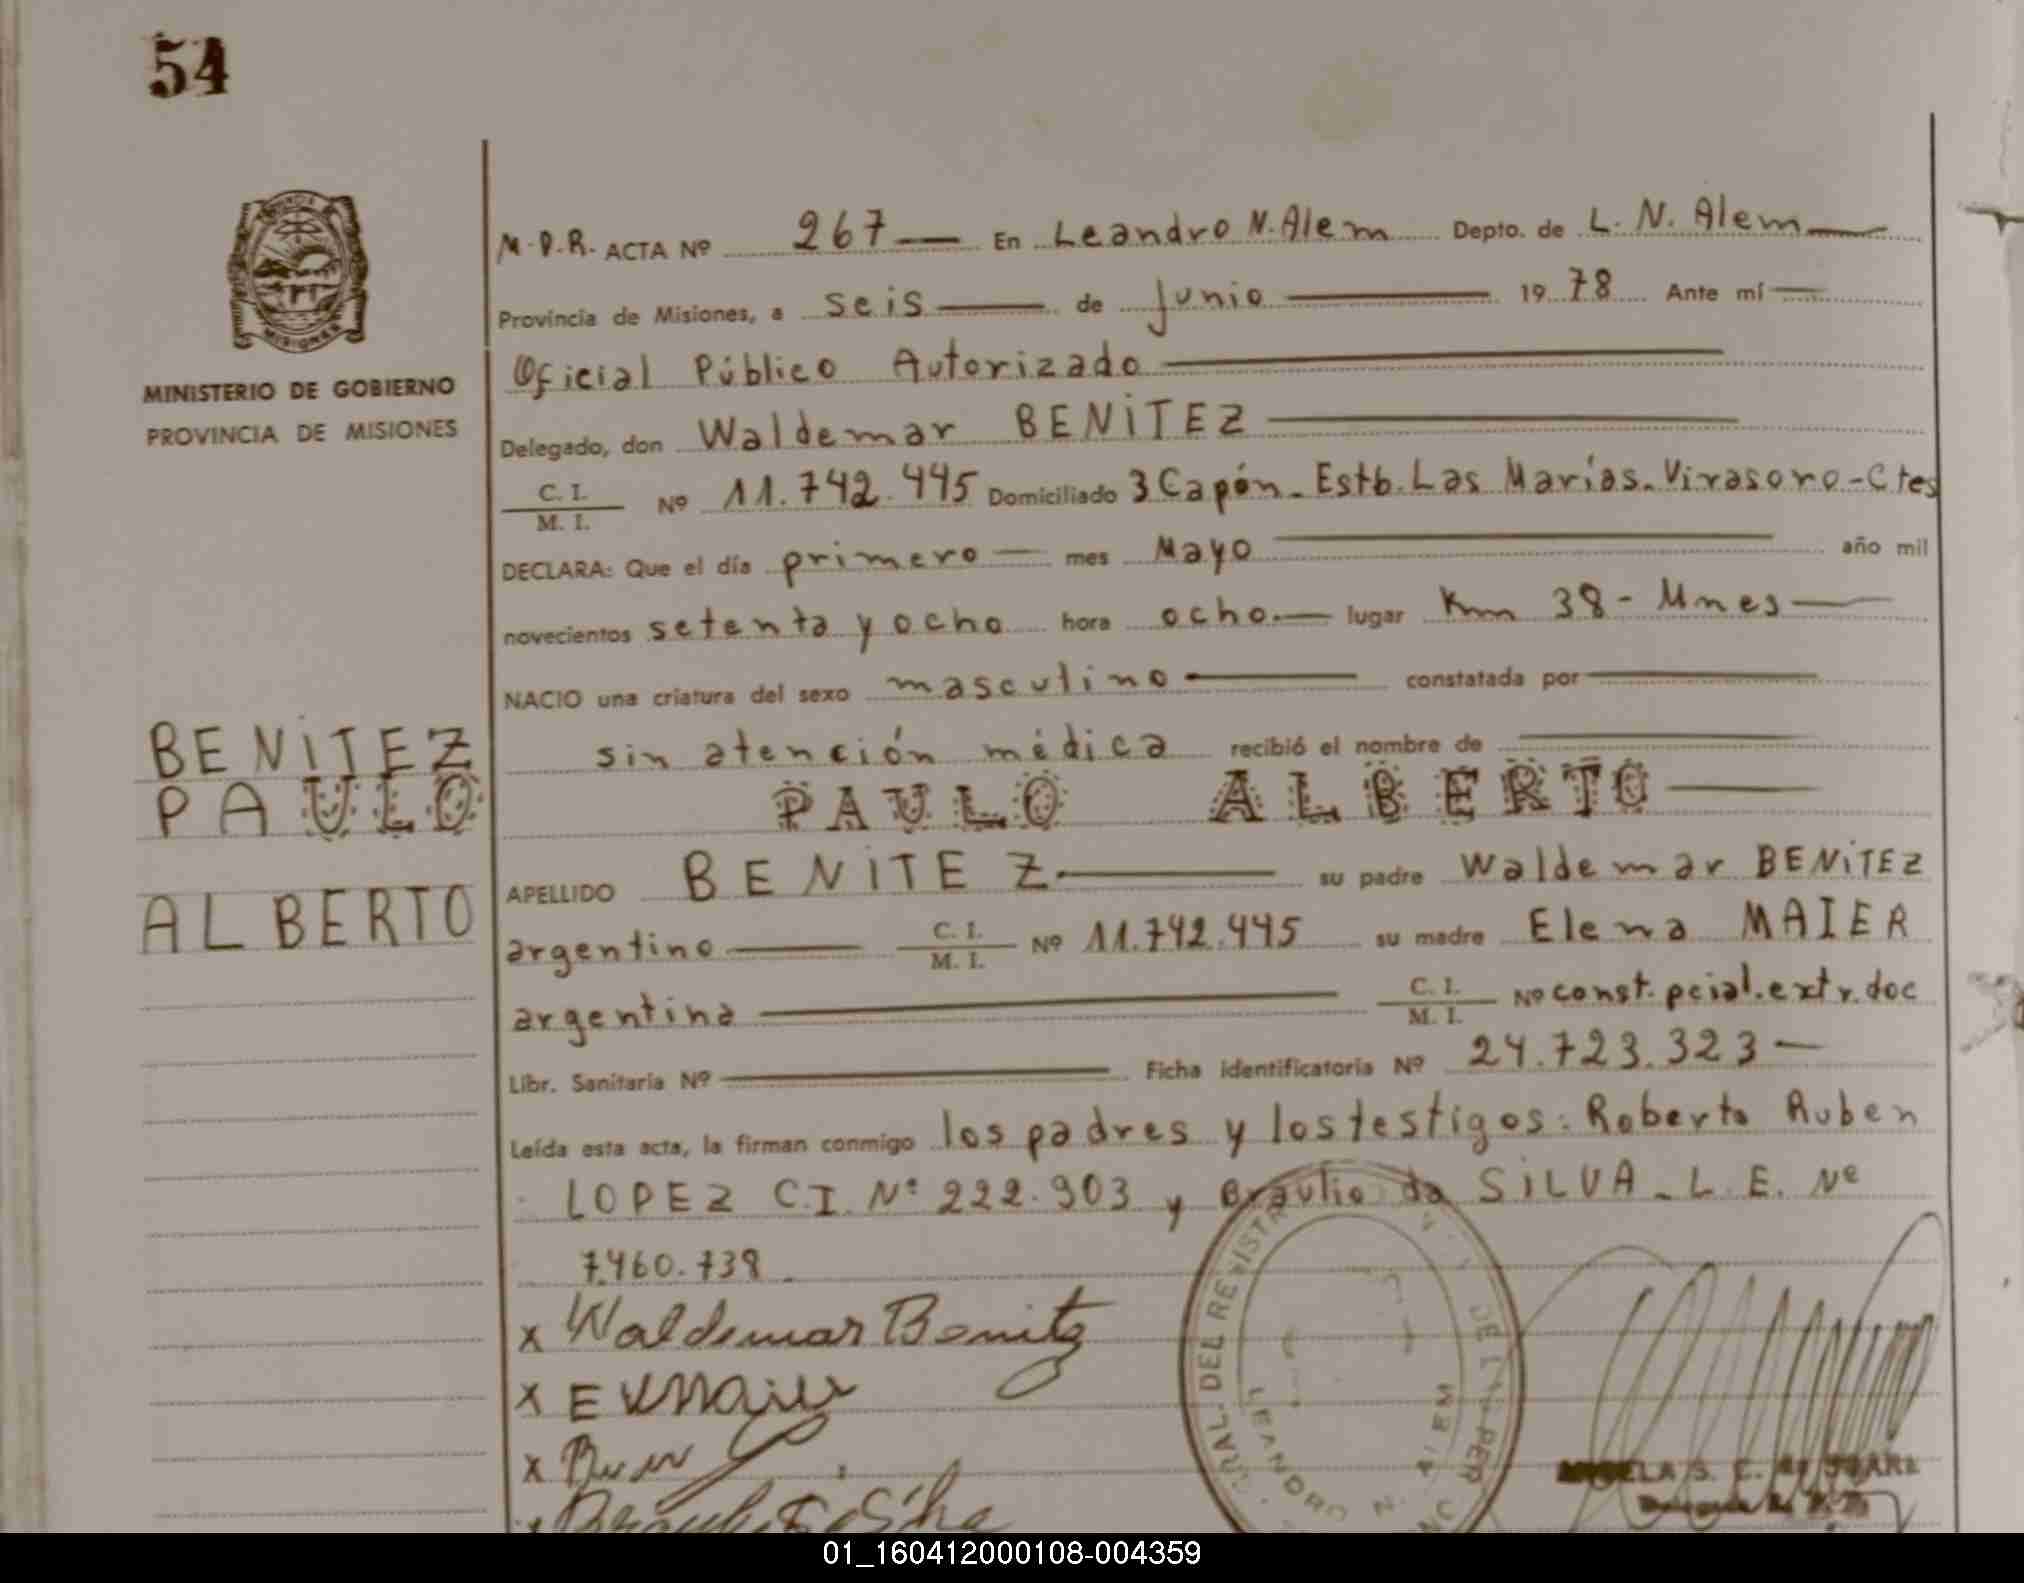 54
MISIONES
MINISTERIO DE GOBIERNO
PROVINCIA DE MISIONES
BENiTEZ
PAULO
ALBERTO
M.D.R. ACTA Nº 267 En Leandro N. Alem Depto. de L. N. Alem
Provincia de Misiones, a seis de junio 19 78 Ante mí
Oficial Público Autorizado
Delegado, don Waldemar BENiTEZ
C. I. / M. I. Nº 11.742.445 Domiciliado 3 Capón. Estb. Las Marías. Virasoro - Ctes
DECLARA: Que el día primero mes Mayo año mil
novecientos setenta y ocho hora ocho. lugar Km 38 - Mnes
NACIO una criatura del sexo masculino constatada por
sin atención médica recibió el nombre de
PAULO ALBERTO
APELLIDO BENiTEZ su padre Waldemar BENiTEZ
argentino C. I. / M. I. Nº 11.742.445 su madre Elena MAIER
argentina C. I. / M. I. Nº const. pcial. extr. doc
Libr. Sanitaria Nº Ficha identificatoria Nº 24.723.323
Leída esta acta, la firman conmigo los padres y los testigos: Roberto Ruben
LOPEZ C.I. Nº 222.903 y Braulio da SiLVA - L. E. Nº
7.460.738
x Waldemar Benitez
x E
x
GRAL. DEL REGISTR
DE LAS PER
LEANDRO N. ALEM
01_160412000108-004359